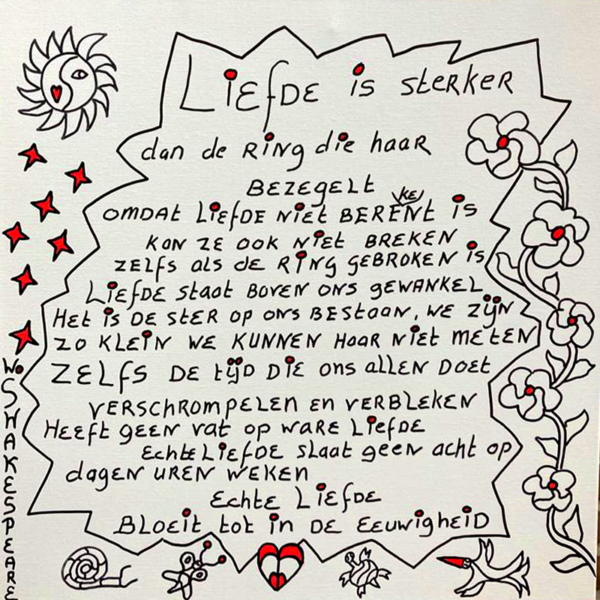 LiEfDE is sterker
dan de Ring die haar
BEZEGELT
ke
OMDAt LiEfDE NiEt BERENt is
KAN ZE OOK NiEt BREKEN
ZELfS ALS dE RiNg GEBROKEN is
LiEfDE staat BOVEN ONS GEWANKEL
HEt iS DE STER OP ONS BESTAAN, WE ZijN
ZO KLEiN WE KUNNEN HAAR NiEt METEN
ZELfS DE tijD DiE ons allEN DOEt
VERSCHROMPELEN EN VERBLEKEN
HEEft gEEN vat op waRE LiEfDE
EchtE LiEfDE slaat geen acht op
dagEN UREN WEKEN
EchtE LiEfDE
BLOEit tot iN DE EEUWigHEiD
Wo SHAKESPEARE